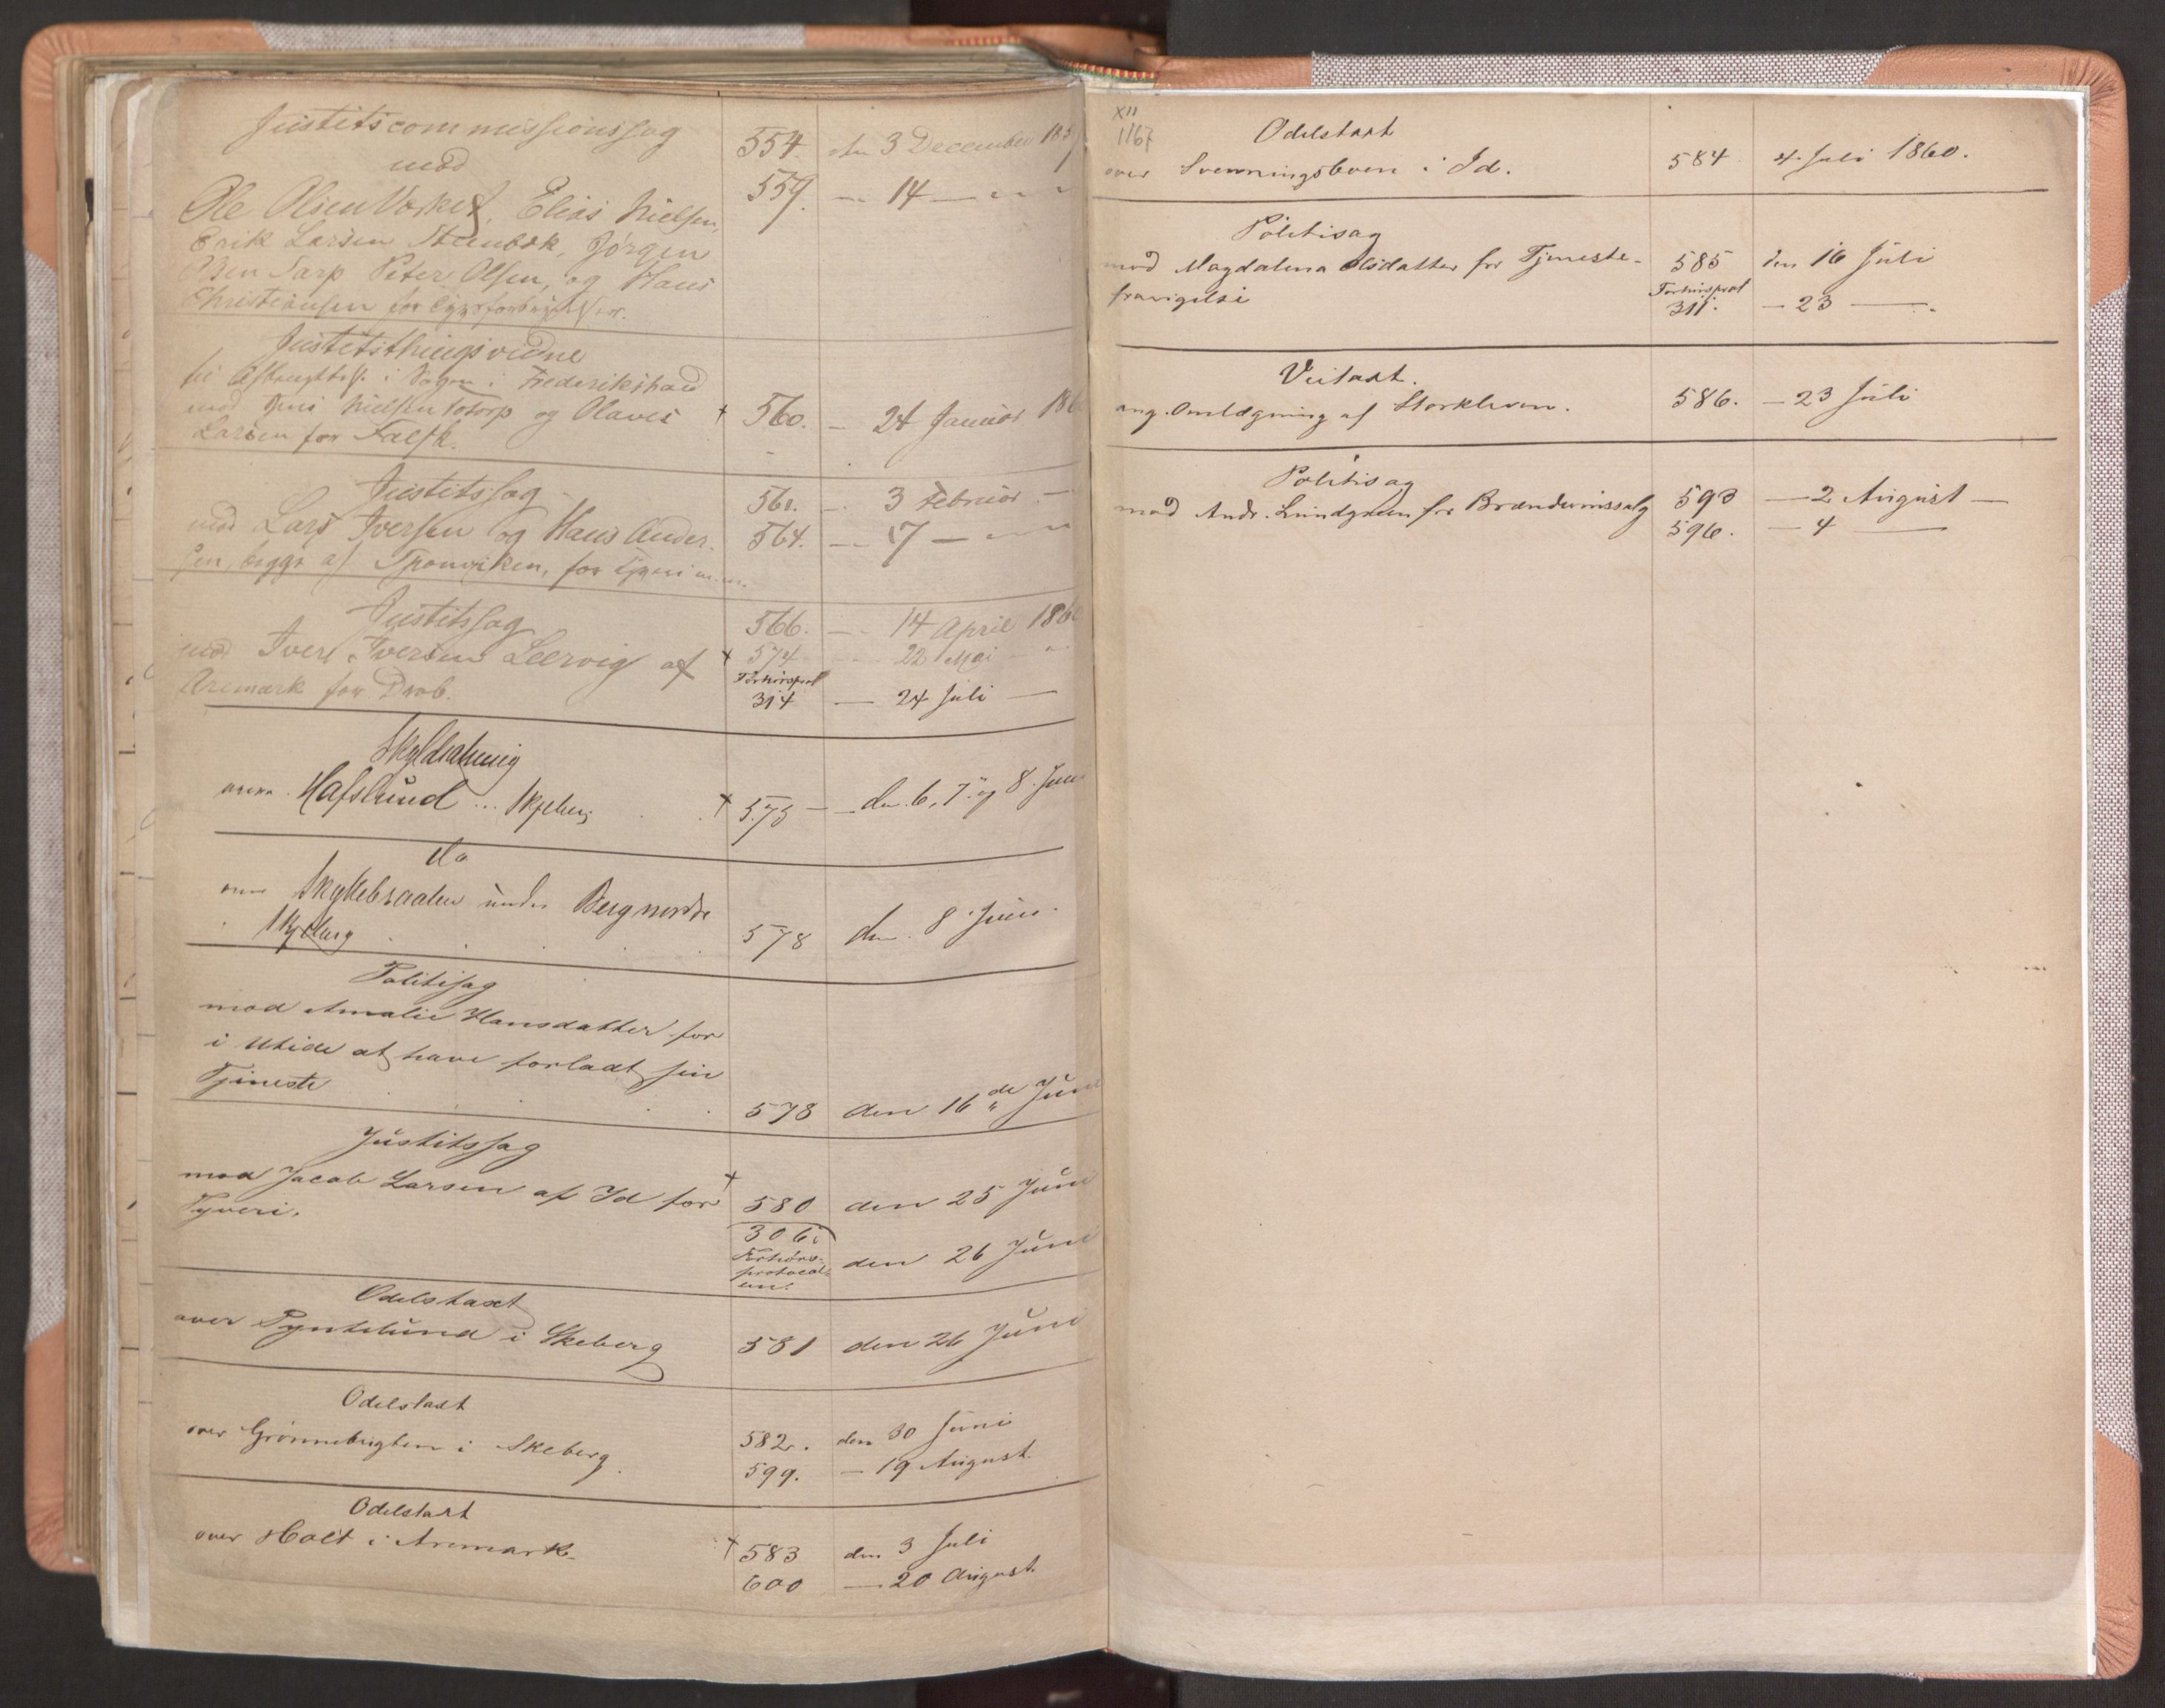 Justitscommissionssag 554. den 3 December 185
mod 559. — 14 — " "
Ole Olsen, Elias Nielsen,
Erik Larsen Steenbæk, Jørgen
Olsen Tarp Peter Olsen, og Hans
Christiansen for
Justitsthingsvidne
i Sagen i Frederikshald
mod Nielsen og Olaves + 560. — 24 Januar 186
Larsen for Falsk.
Justitssag 561. — 3 Februar —
mod Lars Iversen og Hans Ander- 564. — 7 — "
sen, begge af Sponviken, for Tyveri m. m.
Justitssag 566. — 14 April 1860
mod Iver Iversen Leervig af + 574 — 22 Mai — "
Aremark for Drab. Forhørsprot 314 — 24 Juli —
Skyldsætning
Hafslund i Skjeberg + 575 — den 6, 7 og 8 Juni
do
under Berg nordre
i Skjeberg 578 den 8 Juni.
Politisag
mod Amalie Hansdatter for
i Utide at have forladt sin
Tjeneste 578 den 16de Juni
Justitssag
mod Jacob Larsen af Id for + 580 den 25 Juni
Tyveri. 306.
Forhørs- den 26 Juni
protocol-
len.
Odelstaxt
over Pyntelund i Skeberg 581 den 26 Juni
Odelstaxt
over Grønnebugten i Skeberg 582. den 30 Juni
599. — 19 August.
Odelstaxt
over Holt i Aremark. + 583 den 3 Juli
600 — 20 August.
XII
1167
Odelstaxt
over Svenningsbøen i Id. 584 4. Juli 1860.
Politisag
mod Magdalena Olsdatter for Tjeneste- 585 den 16 Juli
fravigelse Forhørsprot 311. — 23 — .
Veitaxt.
ang. Omlægning af Storkleven. 586. — 23 Juli
Politisag
mod Andr. Lundgreen for Brændevinssalg 593 — 2 August —
596. — 4 —